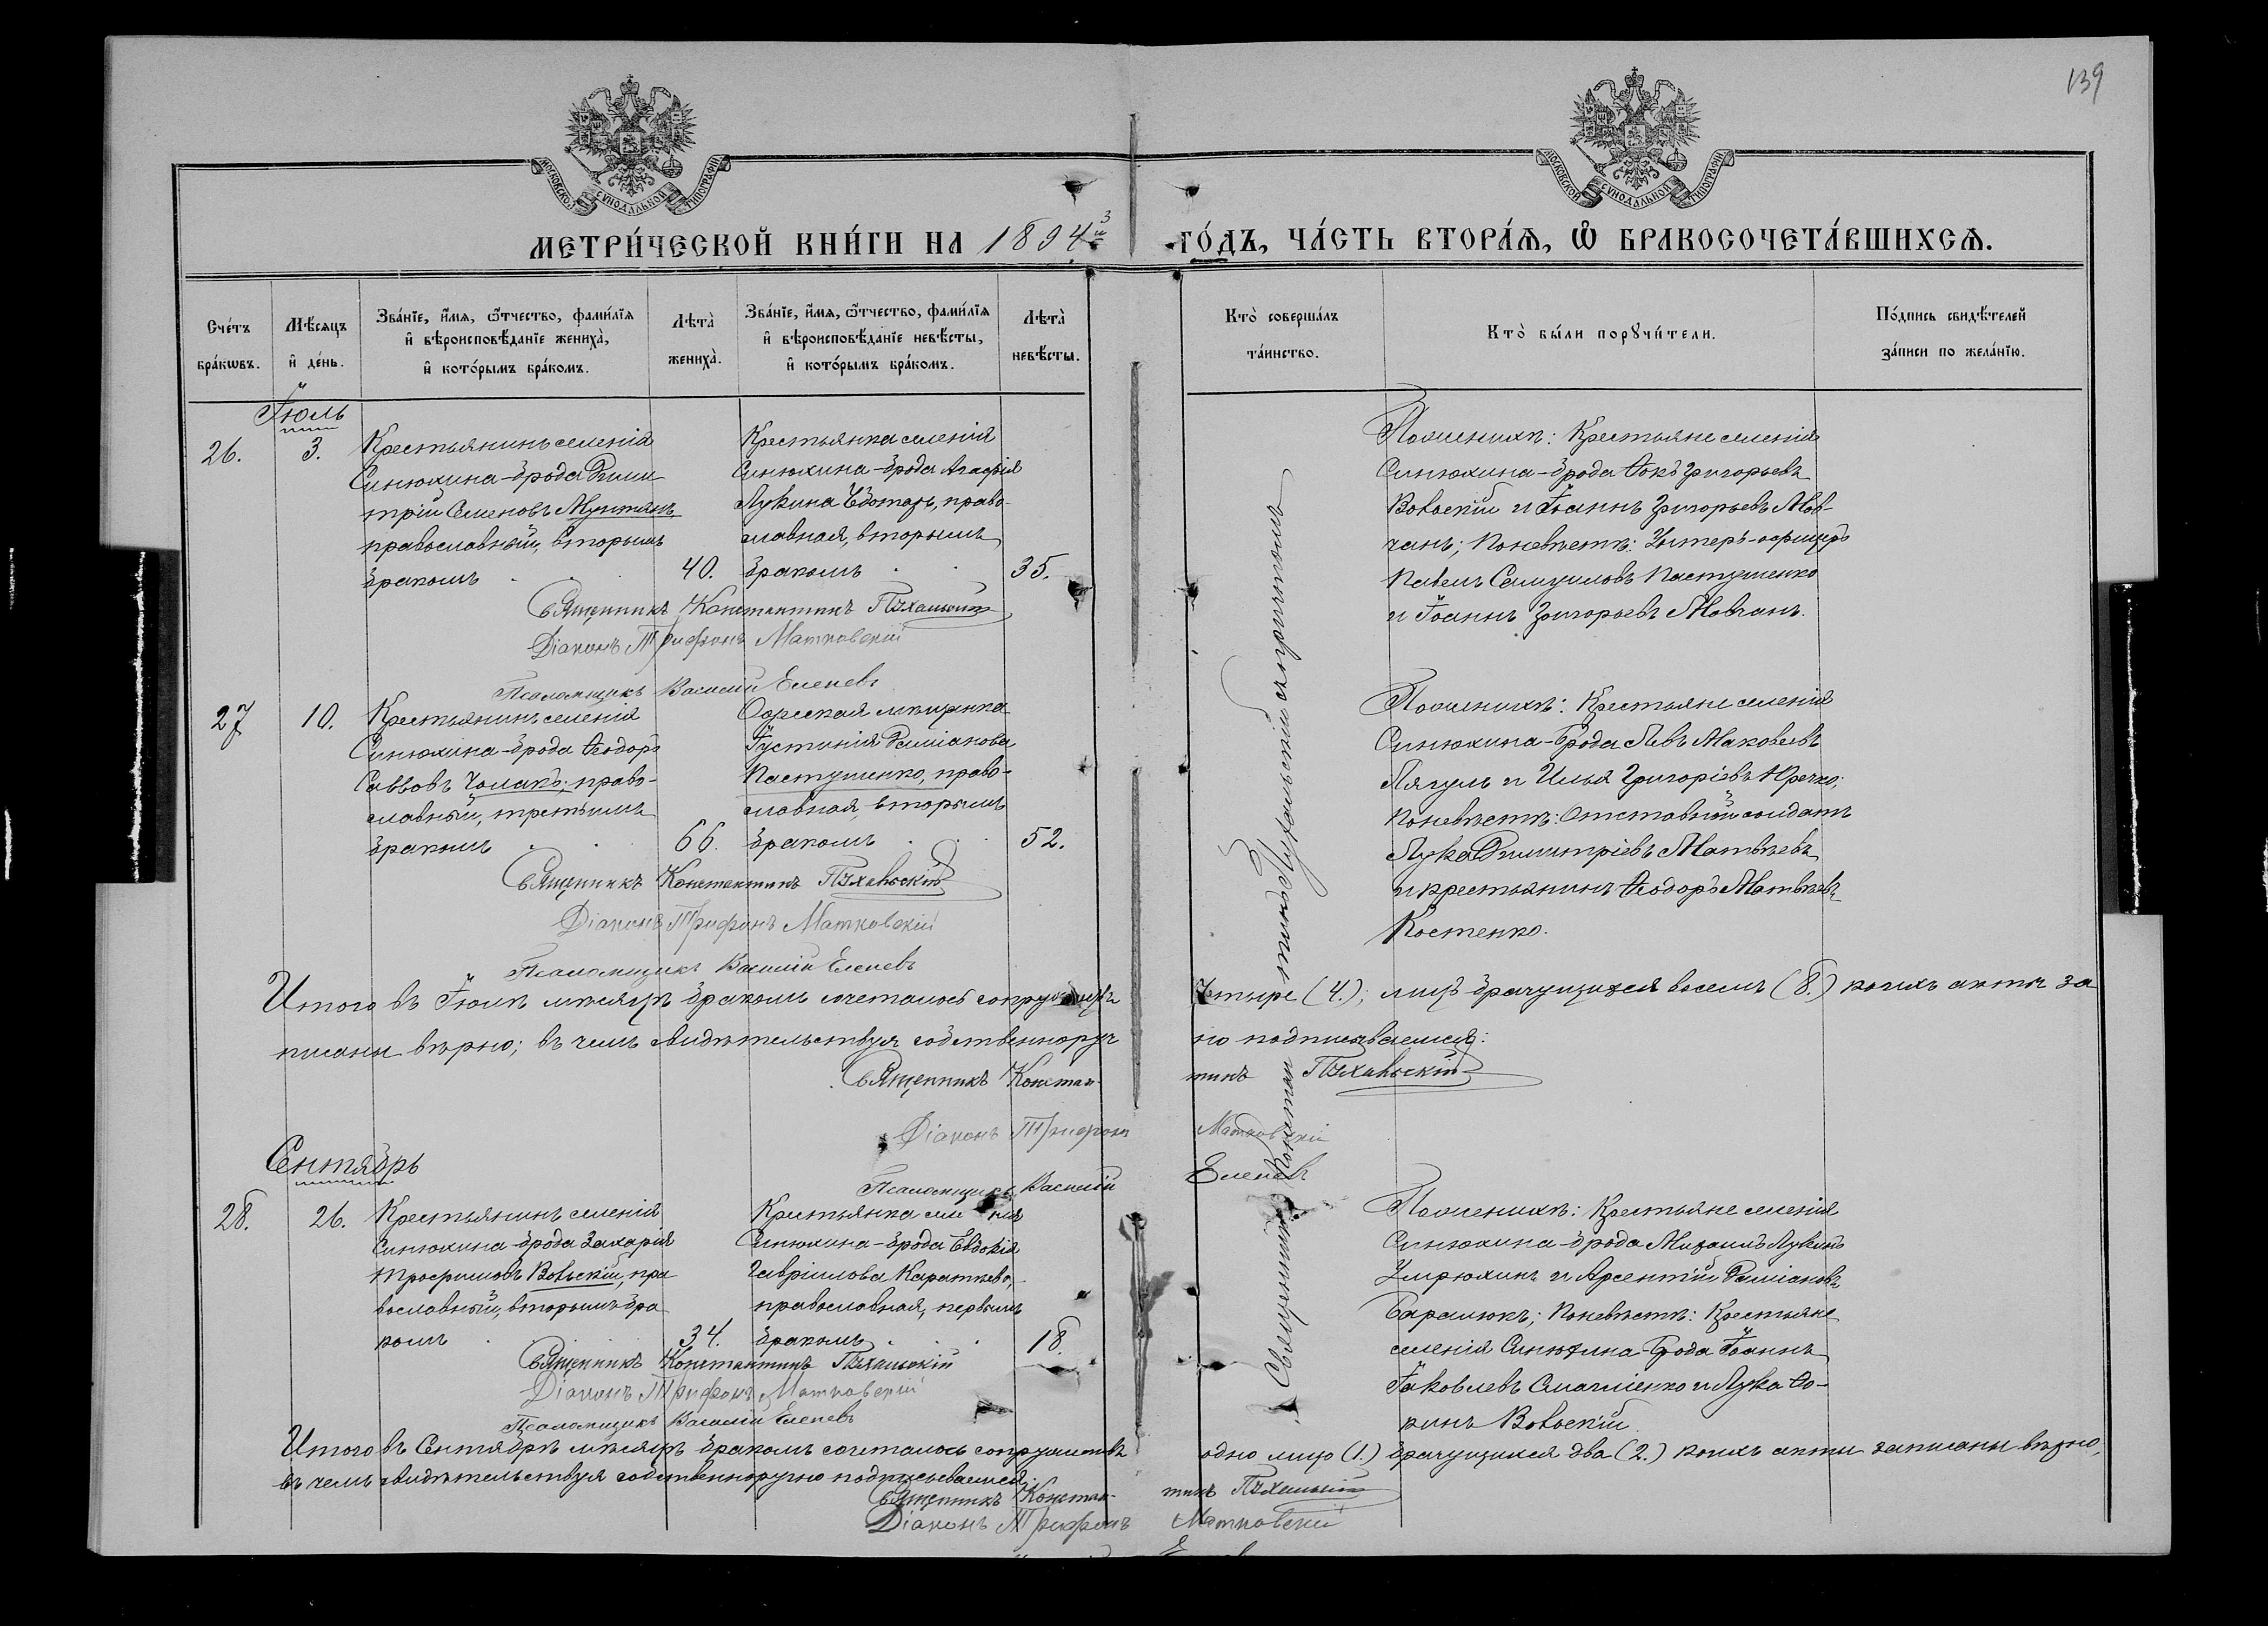 139
МОСКОВСКОЙ СѴНОДАЛЬНОЙ ТИПОГРАФІИ
МОСКОВСКОЙ СѴНОДАЛЬНОЙ ТИПОГРАФІИ
МЕТРИ́ЧЕСКОЙ КНИ́ГИ НА 1894 й 3 ГО́ДЪ, ЧА́СТЬ ВТОРА́Ѧ, Ѽ БРАКОСОЧЕТА́ВШИХСѦ.
Сче́тъ бра́кѡвъ.
Мѣ́сяцъ и҆ де́нь.
Зва́нїе, и҆́мѧ, ѻ҆́тчество, фами́лїѧ
и҆ вѣроисповѣ́данїе жениха̀,
и҆ кото́рымъ бра́комъ.
Лѣта̀ жениха̀.
Зва́нїе, и҆́мѧ, ѻ҆́тчество, фами́лїѧ
и҆ вѣроисповѣ́данїе невѣ́сты,
и҆ кото́рымъ бра́комъ.
Лѣта̀ невѣ́сты.
Кто̀ соверша́лъ та́инство.
Кто̀ бы́ли порꙋчи́тели.
По́дпись свидѣ́телей за́писи по жела́нїю.
Іюль
26.
3.
Крестьянинъ селенія
Синюхина-брода Дими
трій Семеновъ Мунтянъ
православный, вторымъ
бракомъ
40.
Крестьянка селенія
Синюхина-брода Агафія
Лукина Ѣботарь, право-
славная, вторымъ
бракомъ
35.
Поженихѣ: Крестьяне селенія
Синюхина-брода Ѳока Григорьевъ
Вовскій и Іоаннъ Григорьевъ Мов-
чанъ; Поневѣстѣ: Унтеръ-офицеръ
Павелъ Самуиловъ Пастушенко
и Іоаннъ Григорьевъ Мовчанъ.
Священникъ Константинъ Пухальскій
Діаконъ Трифонъ Матковскій
Псаломщикъ Василій Еленевъ
27
10.
Крестьянинъ селенія
Синюхина-брода Ѳеодоръ
Саввовъ Чолакъ, право-
славный, третьимъ
бракомъ
66.
Одесская мѣщанка
Іустинія Даміанова
Пастушенко, право-
славная, вторымъ
бракомъ
52.
Поженихѣ: Крестьяне селенія
Синюхина-Брода Левъ Маковеевъ
Лягулъ и Илья Григоріевъ Юречко;
Поневѣстѣ: Отставной солдатъ
Лука Димитріевъ Матвѣевъ
и крестьянинъ Ѳеодоръ Матвѣевъ
Костенко.
Священникъ Константинъ Пухальскій
Діаконъ Трифонъ Матковскій
Псаломщикъ Василій Еленевъ
Священникъ Константинъ Пухальскій съ причтомъ
Итого въ Іюлѣ мѣсяцѣ бракомъ сочеталось супружествъ Четыре (4.); лицъ брачущихся восемь (8.) коихъ акты за
писаны вѣрно; въ чемъ свидѣтельствуя собственноруч но подписываемся:
Священникъ Констан- тинъ Пухальскій
Діаконъ Трифонъ Матковскій
Псаломщикъ Василій Еленевъ
Сентябрь
28.
26.
Крестьянинъ селенія
Синюхина-брода Захарія
Трофимовъ Вовскій, пра
вославный, вторымъ бра
комъ
34.
Крестьянка селенія
Синюхина-брода Евдокія
Гавріилова Каратѣева,
православная, первымъ
бракомъ
18.
Поженихѣ: Крестьяне селенія
Синюхина-брода Михаилъ Лукинъ
и Арсентій Даміановъ
Баралюкъ; Поневѣстѣ: Крестьяне
селенія Синюхина-Брода Іоаннъ
Іаковлевъ и Лука Ѳо-
кинъ Вовскій.
Священникъ Константинъ Пухальскій
Діаконъ Трифонъ Матковскій
Псаломщикъ Василій Еленевъ
Итого въ Сентябрѣ мѣсяцѣ бракомъ сочеталось супружествъ одно лицо (1.) брачущихся два (2.) коихъ акты записаны вѣрно,
въ чемъ свидѣтельствуя собственноручно подписываемся:
Священникъ Констан- тинъ Пухальскій
Діаконъ Трифонъ Матковскій